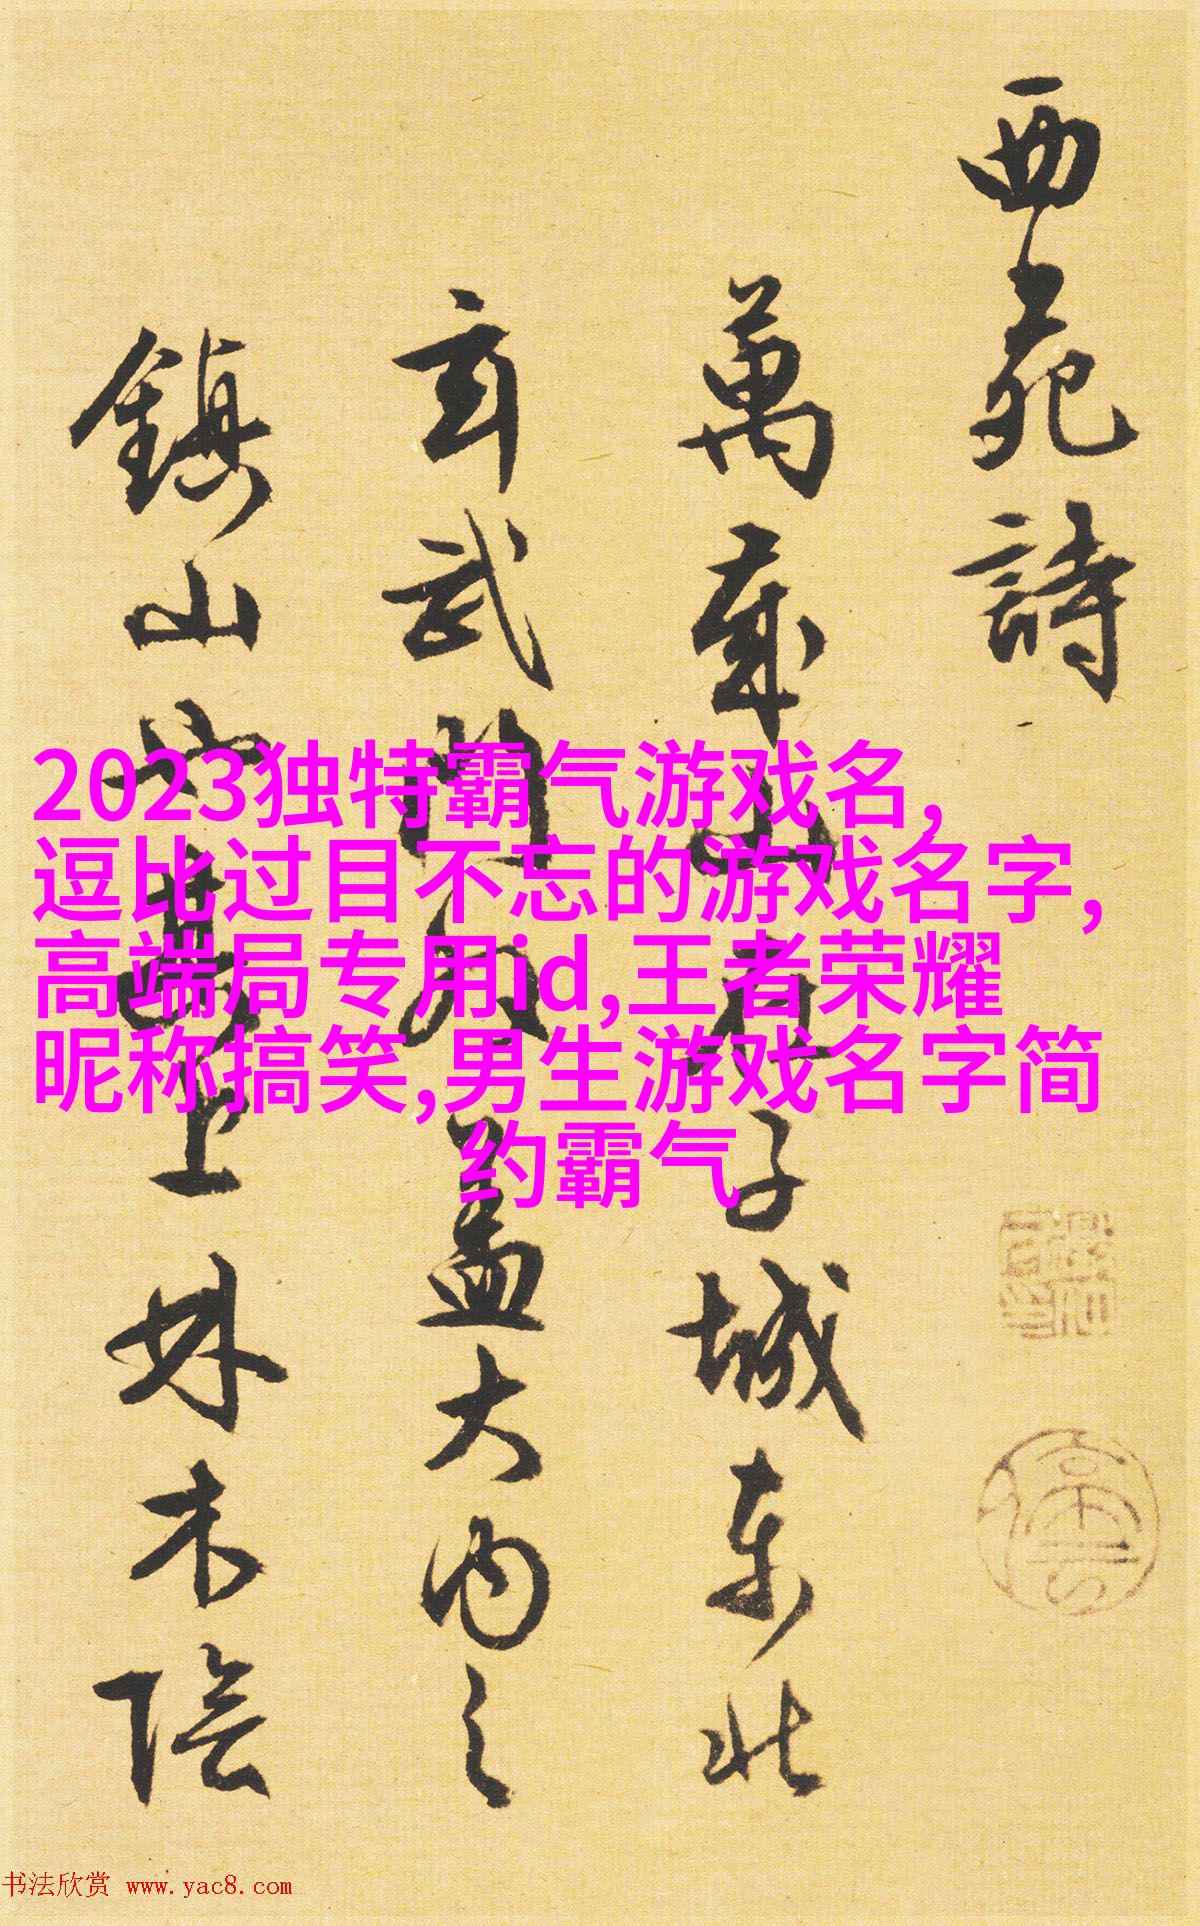 西苑詩
萬歲山在子城東北
玄武門外蓋大內之
鎮山也其上林木陰
2023独特霸气游戏名,
逗比过目不忘的游戏名字,
高端局专用id,王者荣耀
昵称搞笑,男生游戏名字简
约霸气
书法欣赏 www.yac8.com